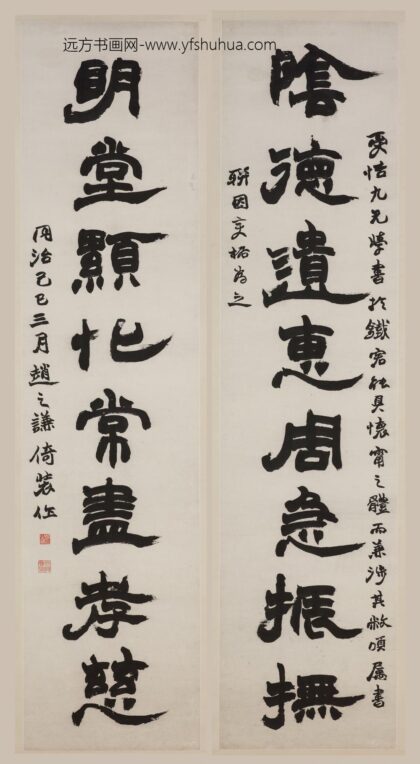 远方书画网-www.yfshuhua.com
九兄學書於鐵具懷甯之體而兼涉其敝頃屬書
陰德遺惠周急振撫
聯因為之
明堂顯化常盡孝慈
同治己巳三月趙之謙倚裝作